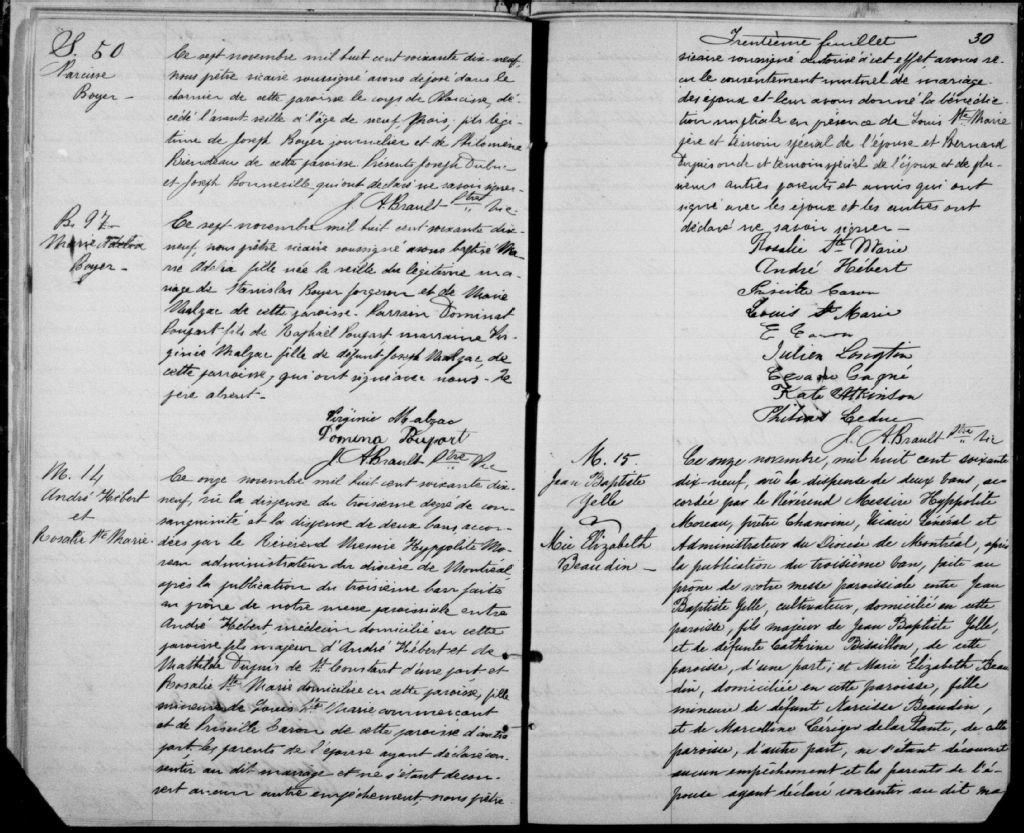 S. 50
Narcisse
Boyer -
Ce sept novembre mil huit cent soixante dix-neuf,
nous prêtre vicaire soussigné avons déposé dans le
charnier de cette paroisse le corps de Narcisse, dé-
cédé l'avant veille à l'âge de neuf mois, fils légi-
time de Joseph Boyer journalier et de Philomène
Riendeau de cette paroisse. Présents Joseph Dubuc
et Joseph Bonneville qui ont déclaré ne savoir signer-
J. A. Brault Ptre Vic
B. 97-
Marie
Boyer -
Ce sept novembre mil huit cent soixante dix-
neuf, nous prêtre vicaire soussigné avons baptisé Ma-
rie fille née la veille du légitime ma-
riage de Stanislas Boyer forgeron et de Marie
Malzac de cette paroisse. Parrain Dominat
fils de Raphaël marraine Vir-
ginie Malzac fille de défunt Joseph Malzac, de
cette parroisse, qui ont signé avec nous - le
père absent -
Virginie Malzac
Domina
J. A. Brault Ptre Vic
M. 14
André Hébert
et
Rosalie Ste Marie -
Ce onze novembre mil huit cent soixante dix-
neuf, vu la dispense du troisième degré de con-
sanguinité et la dispense de deux bans accor-
dées par le Révérend Messire Hyppolite Mo-
reau administrateur du diocèse de Montréal,
après la publication du troisième ban faite
au prône de notre messe paroissiale entre
André Hébert médecin domicilié en cette
paroisse fils majeur d'André Hébert et de
Mathilde Dupuis de St Constant d'une part et
Rosalie Ste Marie domiciliée en cette paroisse, fille
mineure de Louis Ste Marie commerçant
et de Priscille Caron de cette paroisse d'autre
part, les parents de l'épouse ayant déclaré con-
sentir au dit mariage et ne s'étant décou-
vert aucun autre empêchement, nous prêtre
Trentième feuillet 30
vicaire soussigné autorisé à cet effet avons re-
çu le consentement mutuel de mariage
des époux et leur avons donné la bénédic-
tion nuptiale en présence de Louis Ste Marie
père et témoin spécial de l'épouse et Bernard
Dupuis oncle et témoin spécial de l'époux et de plu-
sieurs autres parents et amis qui ont
signé avec les époux et les autres ont
déclaré ne savoir signer -
Rosalie Ste Marie
André Hébert
Priscille Caron
Louis St Marie
E Caron
Julien
Gagné
Kate Atkinson
Leduc
J. A. Brault Ptre Vic
M. 15
Jean Baptiste
Yelle
Mie Elizabeth
Beaudin -
Ce onze novembre, mil huit cent soixante
dix-neuf, vû la dispense de deux bans, ac-
cordée par le Révérend Messire Hyppolite
Moreau, prêtre Chanoine, Vicaire Général et
Administrateur du Diocèse de Montréal, après
la publication du troisième ban, faite au
prône de notre messe paroissiale entre Jean
Baptiste Yelle, cultivateur, domicilié en cette
paroisse, fils majeur de Jean Baptiste Yelle,
et de défunte Cathrine Bissillon, de cette
paroisse, d'une part; et Marie Elizabeth Beau-
din, domiciliée en cette paroisse, fille
mineure de défunt Narcisse Beaudin,
et de Marcelline de cette
paroisse, d'autre part, ne s'étant découvert
aucun empêchement et les parents de l'é-
pouse ayant déclaré consentir au dit ma